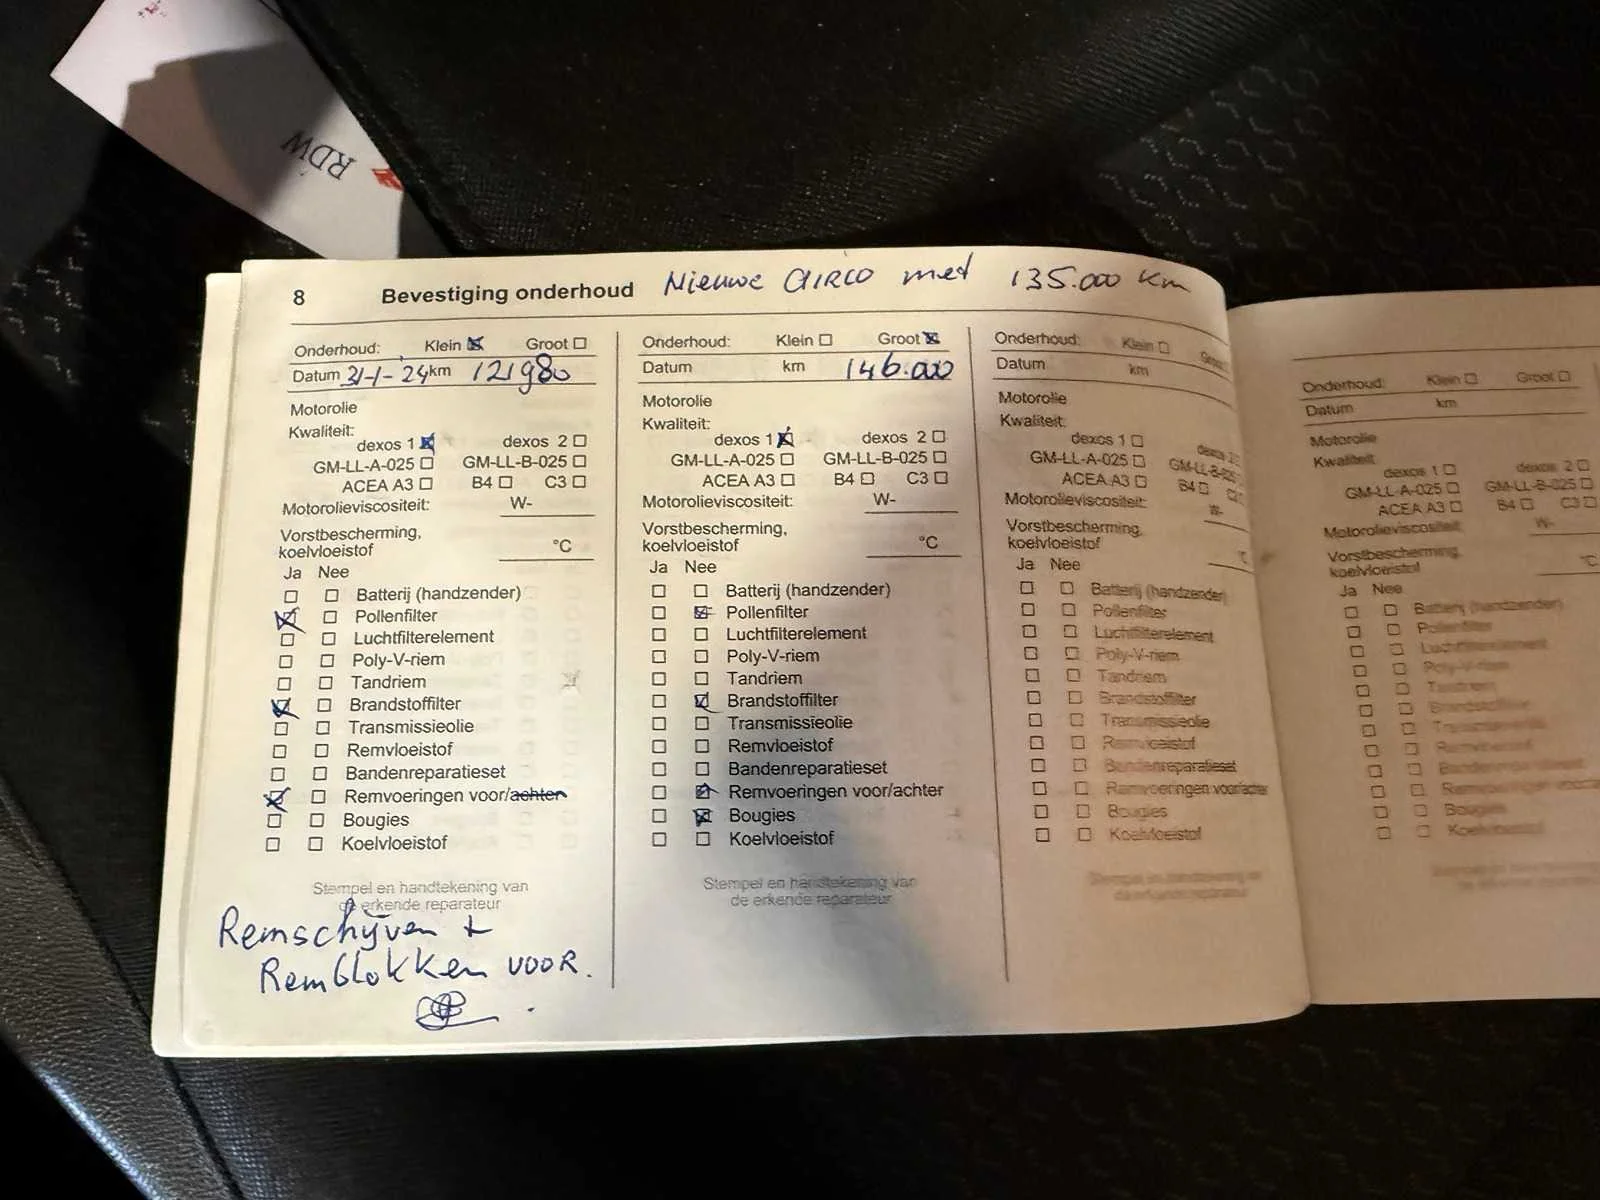 RDW
8 Bevestiging onderhoud Nieuwe Airco met 135.000 km
Onderhoud: Klein ☒ Groot ☐
Datum 31-1-24 km 121980
Motorolie
Kwaliteit:
dexos 1 ☒ dexos 2 ☐
GM-LL-A-025 ☐ GM-LL-B-025 ☐
ACEA A3 ☐ B4 ☐ C3 ☐
Motorolieviscositeit: W-
Vorstbescherming,
koelvloeistof °C
Ja Nee
☐ ☐ Batterij (handzender)
☒ ☐ Pollenfilter
☐ ☐ Luchtfilterelement
☐ ☐ Poly-V-riem
☐ ☐ Tandriem
☒ ☐ Brandstoffilter
☐ ☐ Transmissieolie
☐ ☐ Remvloeistof
☐ ☐ Bandenreparatieset
☒ ☐ Remvoeringen voor/achter
☐ ☐ Bougies
☐ ☐ Koelvloeistof
Stempel en handtekening van
de erkende reparateur
Remschijven +
Remblokken voor.
Onderhoud: Klein ☐ Groot ☒
Datum km 146.000
Motorolie
Kwaliteit:
dexos 1 ☒ dexos 2 ☐
GM-LL-A-025 ☐ GM-LL-B-025 ☐
ACEA A3 ☐ B4 ☐ C3 ☐
Motorolieviscositeit: W-
Vorstbescherming,
koelvloeistof °C
Ja Nee
☐ ☐ Batterij (handzender)
☐ ☒ Pollenfilter
☐ ☐ Luchtfilterelement
☐ ☐ Poly-V-riem
☐ ☐ Tandriem
☐ ☒ Brandstoffilter
☐ ☐ Transmissieolie
☐ ☐ Remvloeistof
☐ ☐ Bandenreparatieset
☐ ☒ Remvoeringen voor/achter
☐ ☒ Bougies
☐ ☐ Koelvloeistof
Stempel en handtekening van
de erkende reparateur
Onderhoud: Klein ☐ Groot ☐
Datum km
Motorolie
Kwaliteit:
dexos 1 ☐ dexos 2 ☐
GM-LL-A-025 ☐ GM-LL-B-025
ACEA A3 ☐ B4 ☐ C3 ☐
Motorolieviscositeit: W-
Vorstbescherming,
koelvloeistof °C
Ja Nee
☐ ☐ Batterij (handzender)
☐ ☐ Pollenfilter
☐ ☐ Luchtfilterelement
☐ ☐ Poly-V-riem
☐ ☐ Tandriem
☐ ☐ Brandstoffilter
☐ ☐ Transmissieolie
☐ ☐ Remvloeistof
☐ ☐ Bandenreparatieset
☐ ☐ Remvoeringen voor/achter
☐ ☐ Bougies
☐ ☐ Koelvloeistof
Stempel en handtekening van
de erkende reparateur
Onderhoud: Klein ☐ Groot ☐
Datum km
Motorolie
Kwaliteit:
dexos 1 ☐ dexos 2 ☐
GM-LL-A-025 ☐ GM-LL-B-025 ☐
ACEA A3 ☐ B4 ☐ C3 ☐
Motorolieviscositeit: W-
Vorstbescherming,
koelvloeistof °C
Ja Nee
☐ ☐ Batterij (handzender)
☐ ☐ Pollenfilter
☐ ☐ Luchtfilterelement
☐ ☐ Poly-V-riem
☐ ☐ Tandriem
☐ ☐ Brandstoffilter
☐ ☐ Transmissieolie
☐ ☐ Remvloeistof
☐ ☐ Bandenreparatieset
☐ ☐ Remvoeringen
☐ ☐ Bougies
☐ ☐ Koelvloeistof